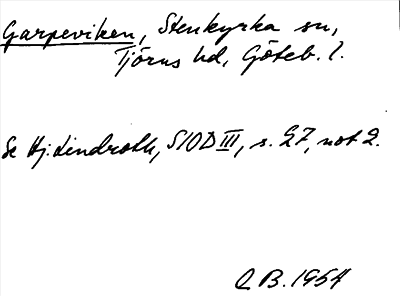 Garpeviken, Stenkyrka sn,
Tjörns hd, Göteb. l.
Se Hj. Lindroth, SIOD III, s. 27, not 2.
B. 1954